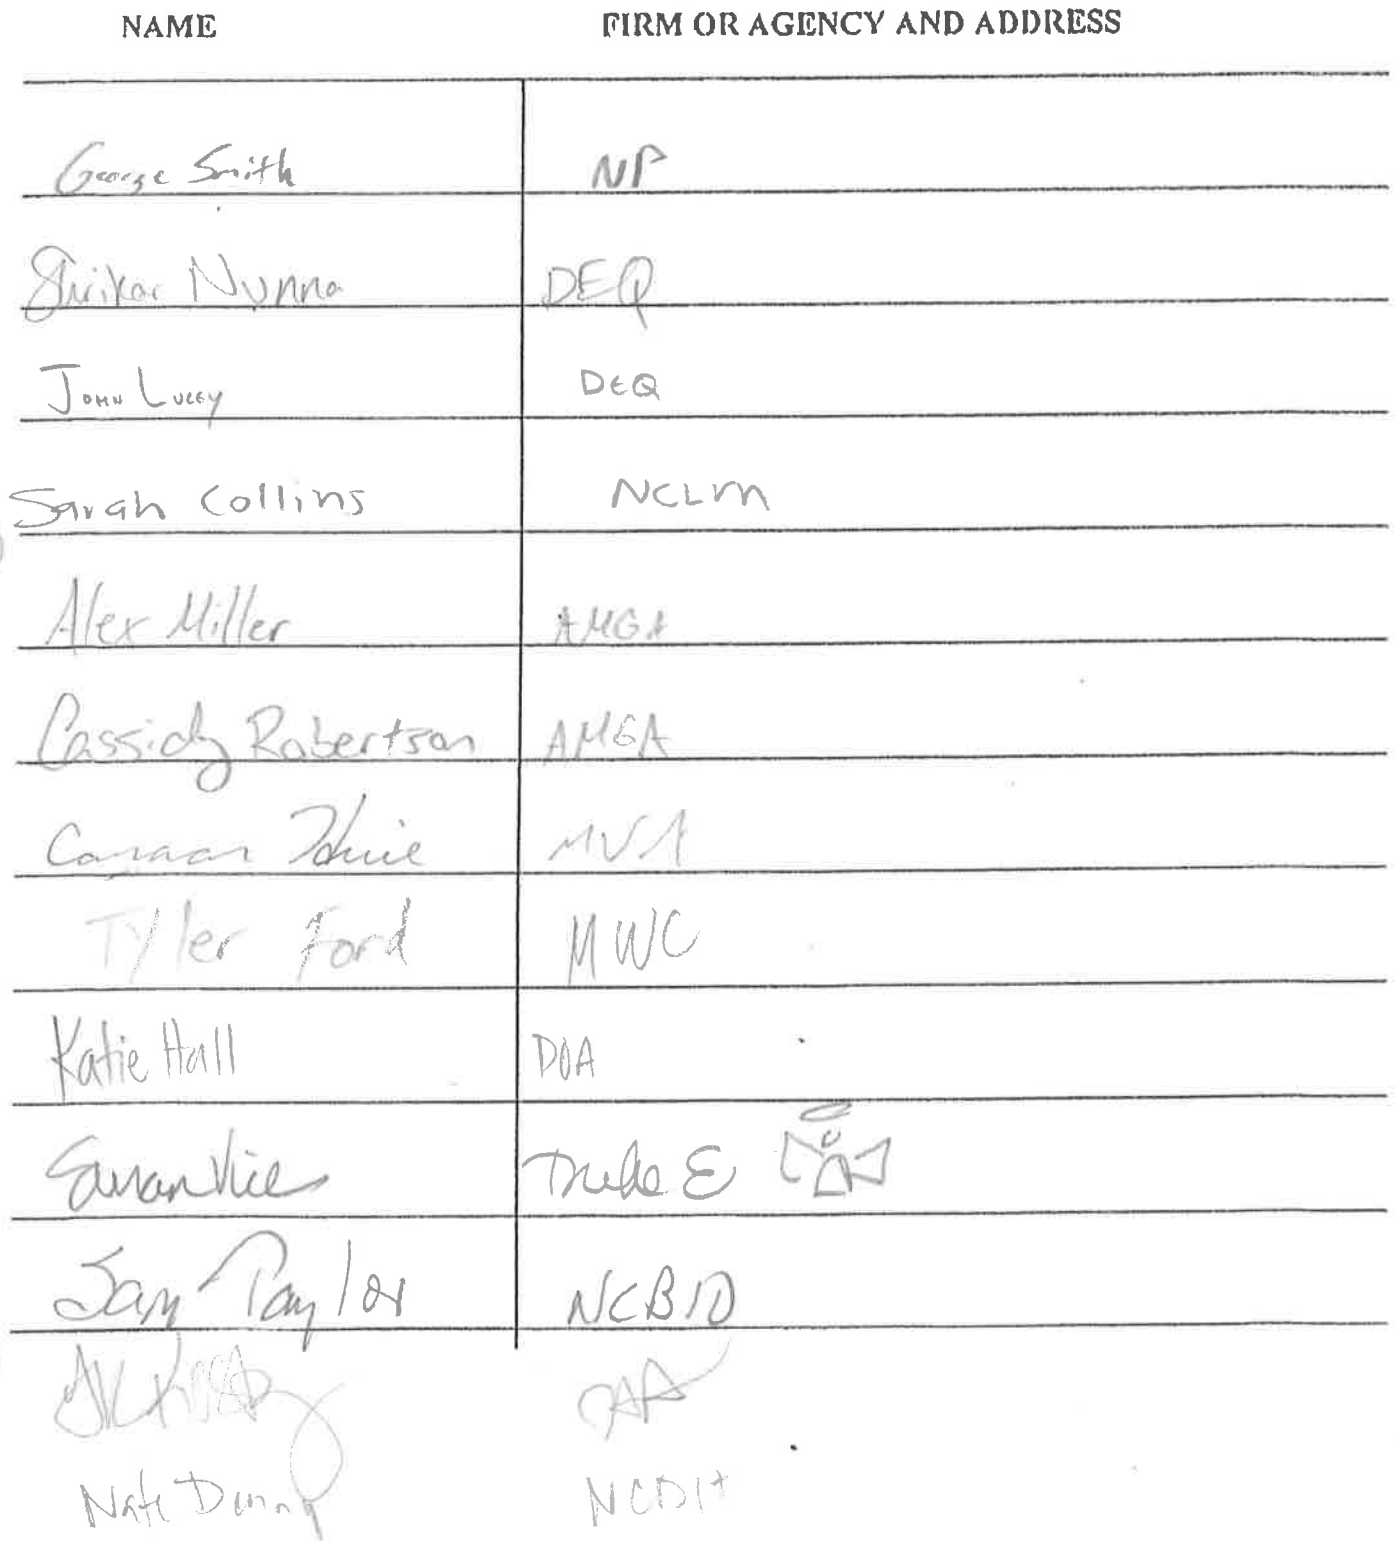 NAME FIRM OR AGENCY AND ADDRESS
George Smith NP
Shrikar Nunna DEQ
John Lucey DEQ
Sarah Collins NCLM
Alex Miller AMGA
Cassidy Robertson AMGA
Canaan Huie MVA
Tyler Ford MWC
Katie Hall DOA
Susan Vick Duke E
Sam Taylor NCBIO
Nate Denny NCDIT